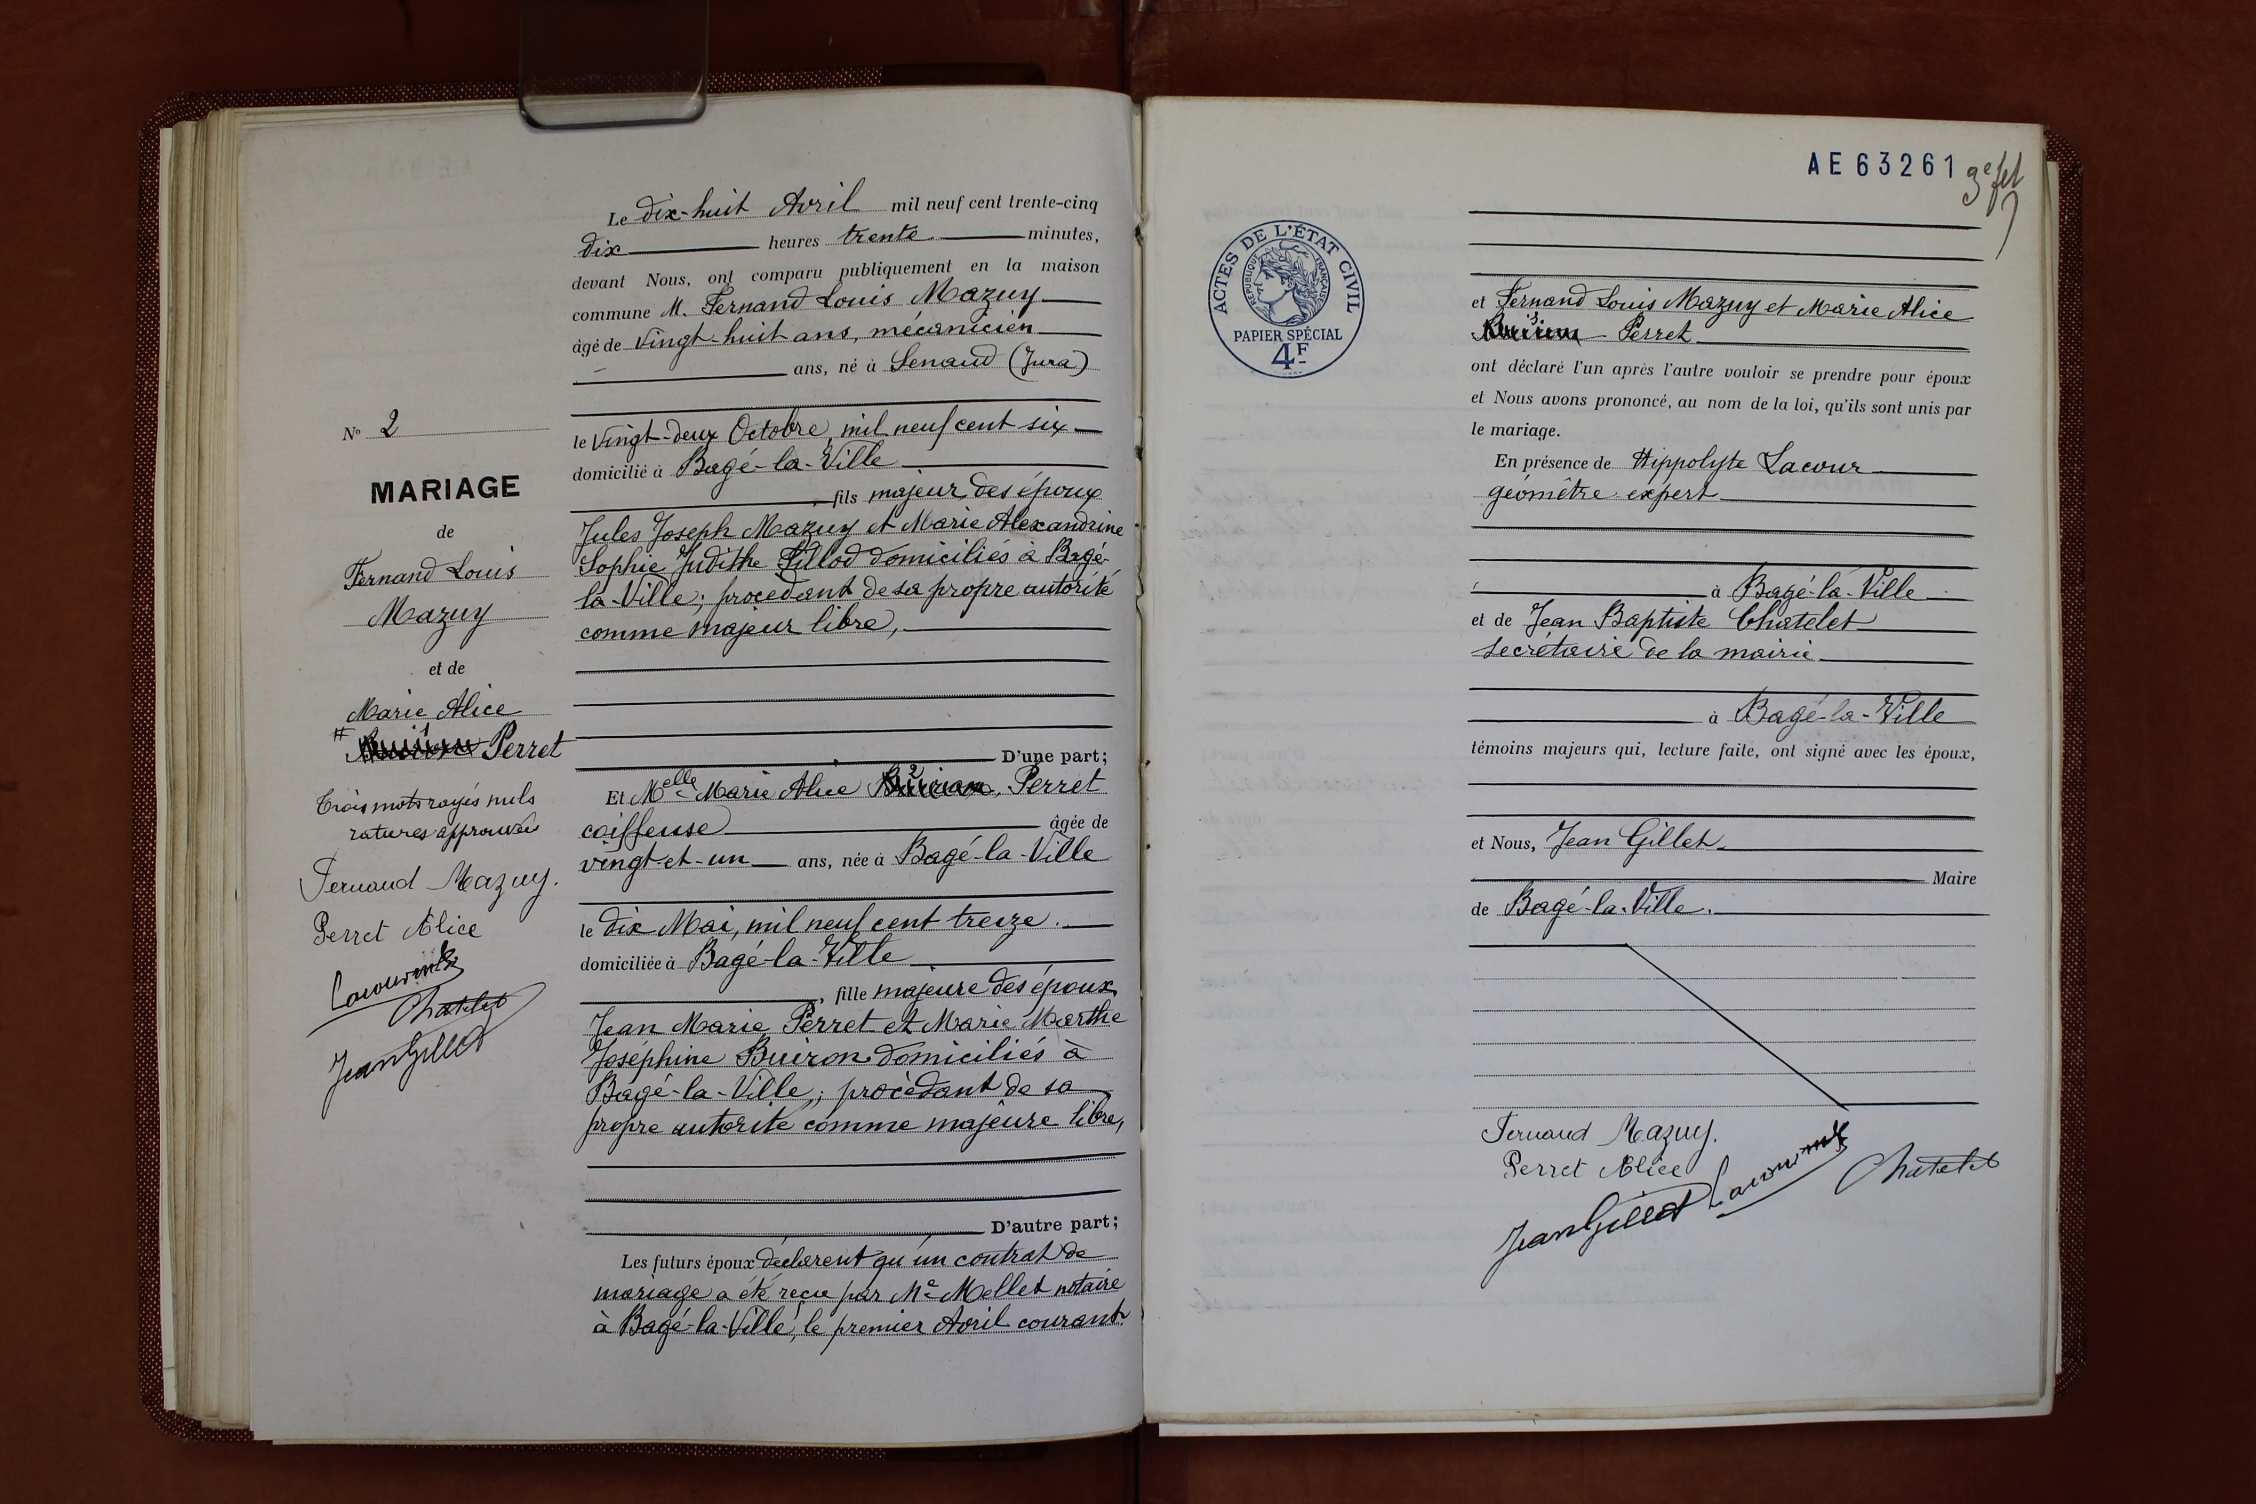 N° 2
MARIAGE
de
Fernand Louis
Mazuy
et de
Marie Alice
Perret
Trois mots rayés nuls
ratures approuvées
Fernand Mazuy.
Perret Alice
Chatelet
Jean Gillet
Le dix-huit Avril mil neuf cent trente-cinq
dix heures trente minutes,
devant Nous, ont comparu publiquement en la maison
commune M. Fernand Louis Mazuy
âgé de vingt-huit ans, mécanicien
ans, né à Senaud (Jura)
le vingt-deux Octobre, mil neuf cent six
domicilié à Bagé-la-Ville
fils majeur des époux
Jules Joseph Mazuy et Marie Alexandrine
Sophie Judithe Pillod domiciliés à Bagé-
la-Ville; procédant de sa propre autorité
comme majeur libre,
D'une part;
Et Melle Marie Alice Buiron 2 Perret
coiffeuse âgée de
vingt-et-un ans, née à Bagé-la-Ville
le dix Mai, mil neuf cent treize.
domiciliée à Bagé-la-Ville
, fille majeure des époux
Jean Marie Perret et Marie Marthe
Joséphine Buiron domiciliés à
Bagé-la-Ville; procèdant de sa
propre autorité comme majeure libre,
D'autre part;
Les futurs époux déclarent qu'un contrat de
mariage a été reçu par Me Mellet notaire
à Bagé-la-Ville, le premier Avril courant.
AE 63261
ACTES DE L'ÉTAT CIVIL
RÉPUBLIQUE FRANÇAISE
PAPIER SPÉCIAL
4F
et Fernand Louis Mazuy et Marie Alice
Buiron 3 Perret
ont déclaré l'un après l'autre vouloir se prendre pour époux
et Nous avons prononcé, au nom de la loi, qu'ils sont unis par
le mariage.
En présence de Hippolyte Lacour
géomètre expert
à Bagé-la-Ville
et de Jean Baptiste Chatelet
secrétaire de la mairie
à Bagé-la-Ville
témoins majeurs qui, lecture faite, ont signé avec les époux,
et Nous, Jean Gillet
Maire
de Bagé-la-Ville.
Fernand Mazuy.
Perret Alice
Jean Gillet Lacour Chatelet